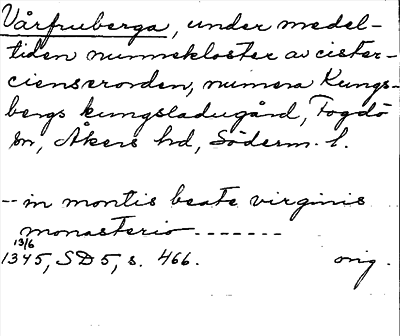 Vårfruberga, under medel-
tiden nunnekloster av cister-
cienserorden, numera Kungs-
bergs kungsladugård, Fogdö
sn, Åkers hd, Söderm. l.
-- in montis beate virginis
monasterio -------
13/6
1345, SD 5, s. 466. orig.